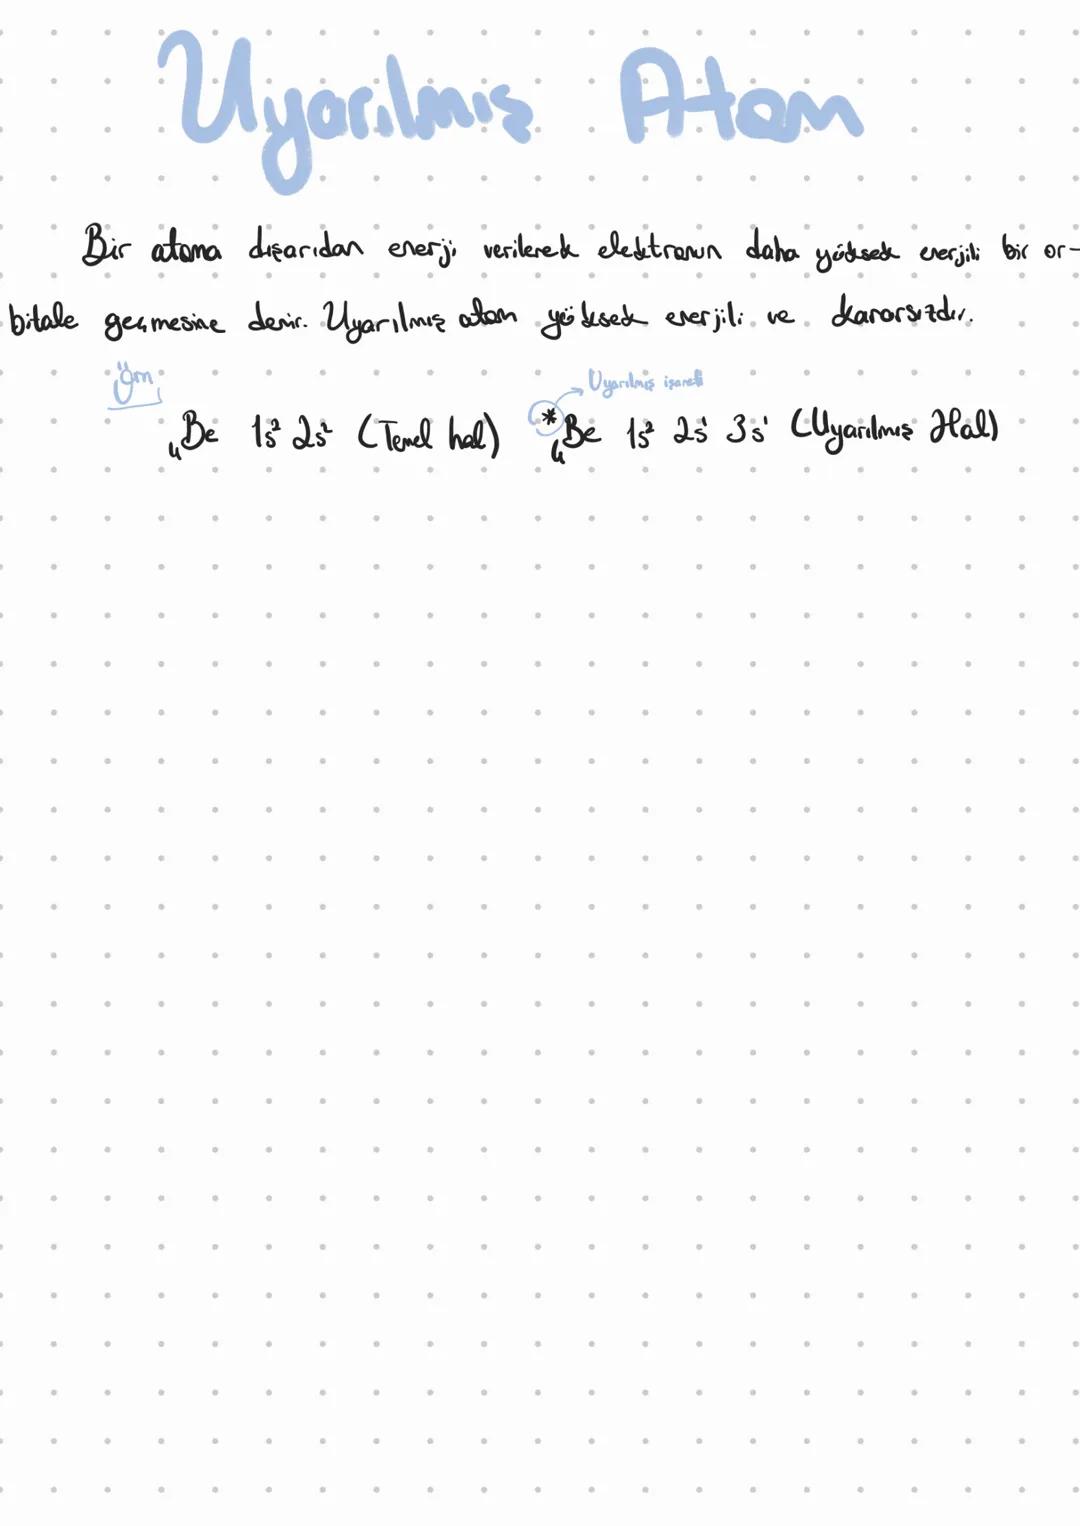 Uyarılmış Atom
Bir atoma dışarıdan enerji verilerek elektronun daha yüksek enerjili bir or-
bitale geçmesine denir. Uyarılmış atom yüksek enerjili ve kararsızdır.
Örn
Uyarılmış işareti
₄Be 1s² 2s² (Temel hal) *₄Be 1s² 2s¹ 3s¹ (Uyarılmış Hal)